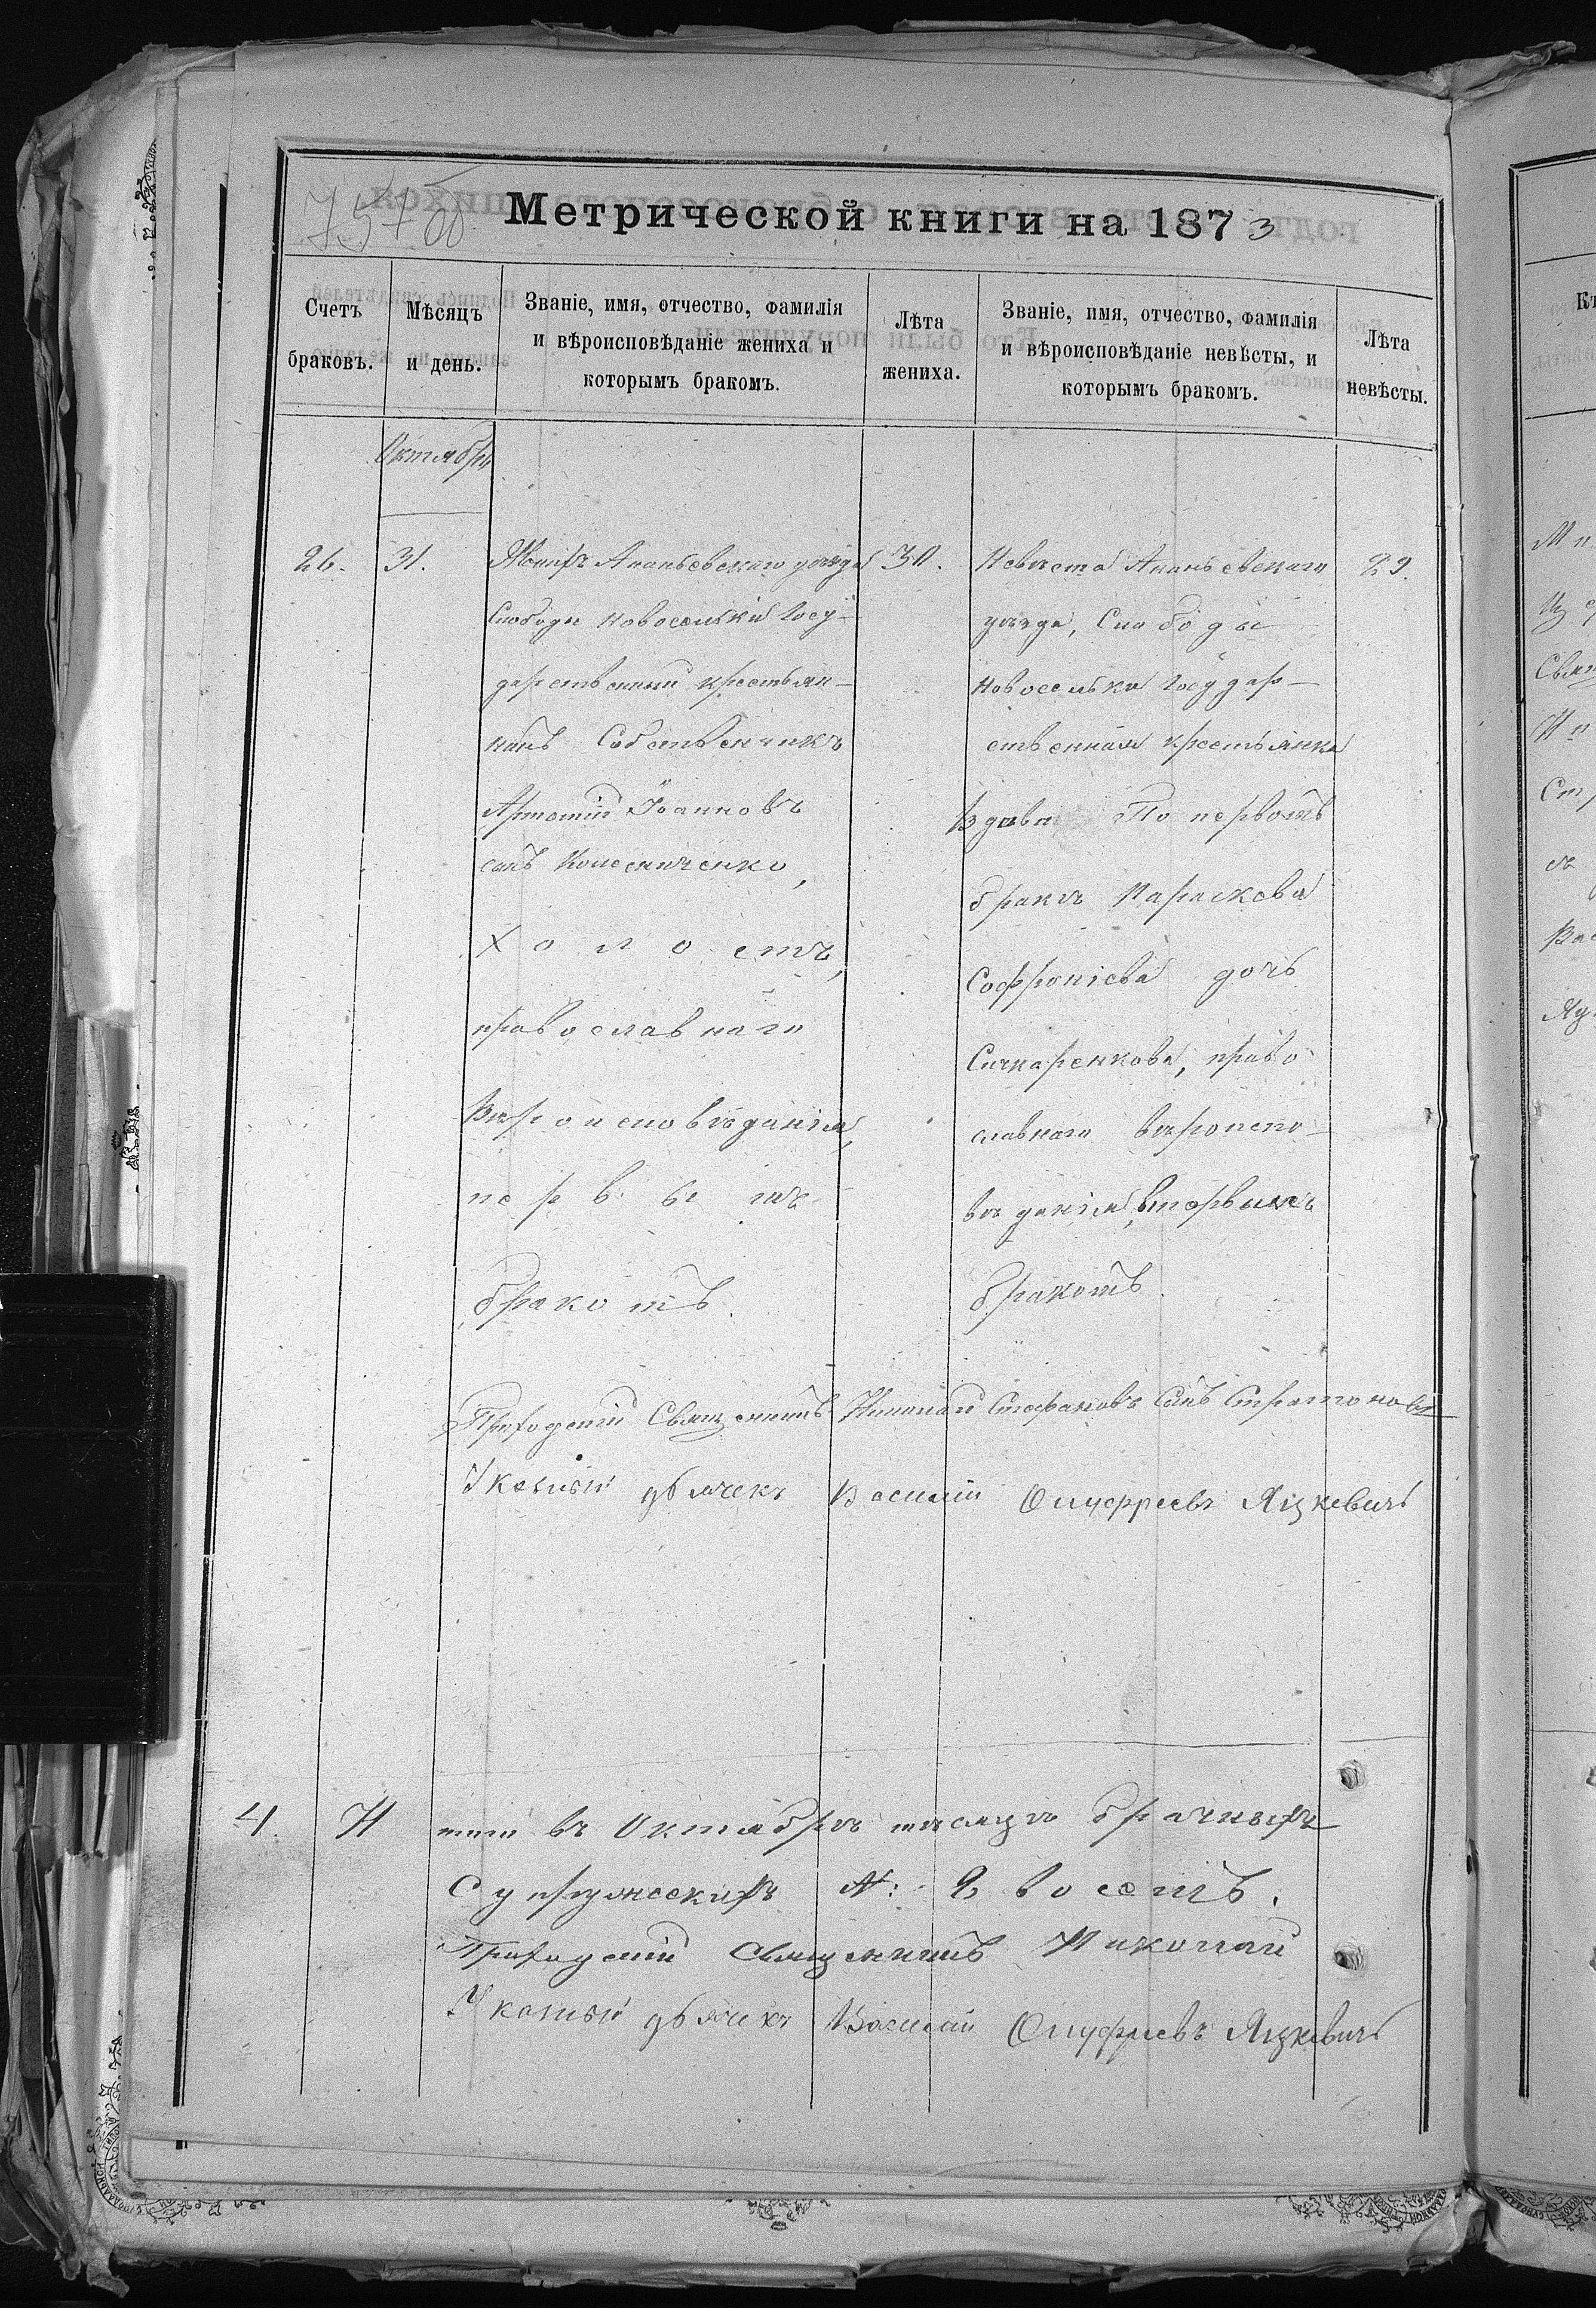 Метрической книги на 1873
Счетъ браковъ.
Мѣсяцъ и день.
Званіе, имя, отчество, фамилія и вѣроисповѣданіе жениха и которымъ бракомъ.
Лѣта жениха.
Званіе, имя, отчество, фамилія и вѣроисповѣданіе невѣсты, и которымъ бракомъ.
Лѣта невѣсты.
Октябрь
26.
31.
Женихъ Ананьевскаго уѣзда
Слободы Новоселки Госу-
дарственный крестьян-
инъ Собственникъ
Артемій Іоанновъ
сынъ
Холостъ,
православнаго
Вѣроисповѣданія,
первымъ
бракомъ.
30.
Невѣста Ананьевскаго
уѣзда, Слободы
Новоселки Государ-
ственная крестьянка
Вдова По первомъ
бракѣ Параскева
Софроніева дочь
право
славнаго вѣроиспо-
вѣданія, вторымъ
бракомъ.
29.
Приходскій Священникъ Николай Стефановъ Сынъ
Указный дьячекъ Василій Онуфріевъ Яцкевичъ
Итого въ Октябрѣ мѣсяцѣ брачныхъ
Супружескихъ №: 8 восемь.
Приходскій Священникъ Николай
Указный дьячекъ Василій Онуфріевъ Яцкевичъ